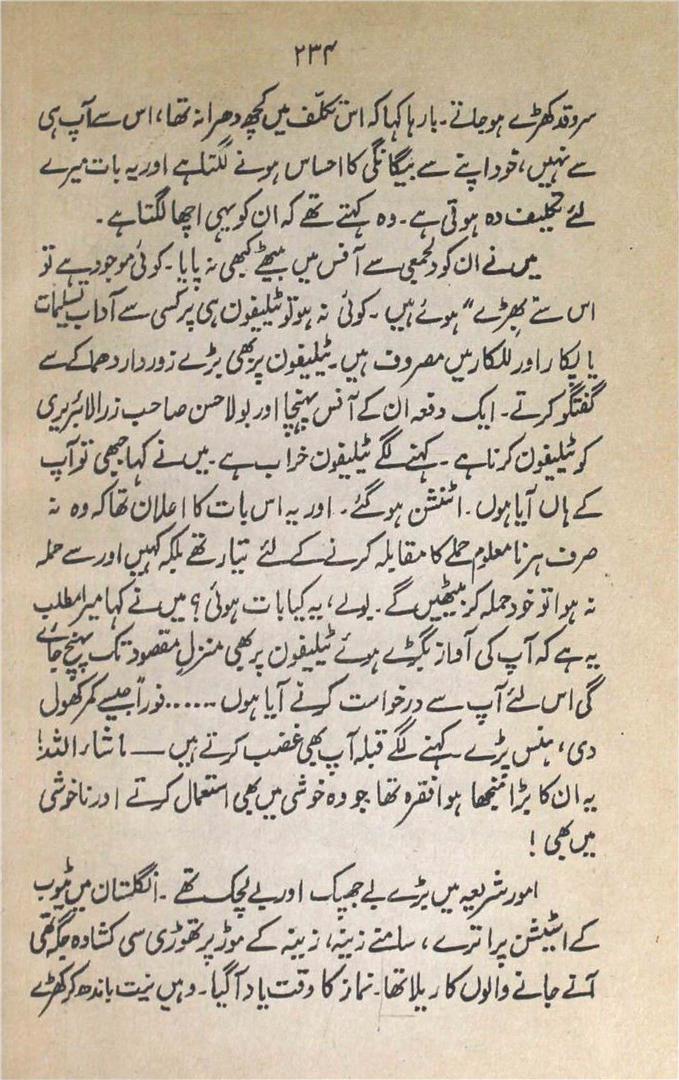 ۲۳۴
سروقد کھڑے ہو جاتے۔ بارہا کہا کہ اس تکلّف میں کچھ دھرا نہ تھا، اس سے آپ ہی
سے نہیں، خود اپنے سے بیگانگی کا احساس ہونے لگتا ہے اور یہ بات میرے
لئے تکلیف دہ ہوتی ہے۔ وہ کہتے تھے کہ ان کو یہی اچھا لگتا ہے۔
میں نے ان کو دلجمعی سے آفس میں بیٹھے کبھی نہ پایا۔ کوئی موجود ہے تو
اس سے بھڑے“ ہوئے ہیں۔ کوئی نہ ہو تو ٹیلیفون ہی پر کسی سے آداب تسلیمات
یا پکار اور للکار میں مصروف ہیں۔ ٹیلیفون پر بھی بڑے زور دار دھماکے سے
گفتگو کرتے۔ ایک دفعہ ان کے آفس پہنچا اور بولا حسن صاحب ذرا لائبریری
کو ٹیلیفون کرنا ہے۔ کہنے لگے ٹیلیفون خراب ہے۔ میں نے کہا جبھی تو آپ
کے ہاں آیا ہوں۔ اٹنشن ہو گئے۔ اور یہ اس بات کا اعلان تھا کہ وہ نہ
صرف ہر نامعلوم حملے کا مقابلہ کرنے کے لئے تیار تھے بلکہ کہیں اور سے حملہ
نہ ہوا تو خود حملہ کر بیٹھیں گے۔ بولے، یہ کیا بات ہوئی؟ میں نے کہا میرا مطلب
یہ ہے کہ آپ کی آواز بگڑے ہوئے ٹیلیفون پر بھی منزلِ مقصود تک پہنچ جائے
گی اس لئے آپ سے درخواست کرنے آیا ہوں ...... فوراً جیسے کمر کھول
دی، ہنس پڑے۔ کہنے لگے قبلہ آپ بھی غضب کرتے ہیں — ماشاء اللہ!
یہ ان کا بڑا منجھا ہوا فقرہ تھا جو وہ خوشی میں بھی استعمال کرتے اور ناخوشی
میں بھی!
امور شریعیہ میں بڑے بے جھجک اور بے لچک تھے۔ انگلستان میں ٹیوب
کے اسٹیشن پر اترے، سامنے زینہ، زینہ کے موڑ پر تھوڑی سی کشادہ جگہ تھی
آنے جانے والوں کا ریلا تھا۔ نماز کا وقت یاد آ گیا۔ وہیں نیت باندھ کر کھڑے